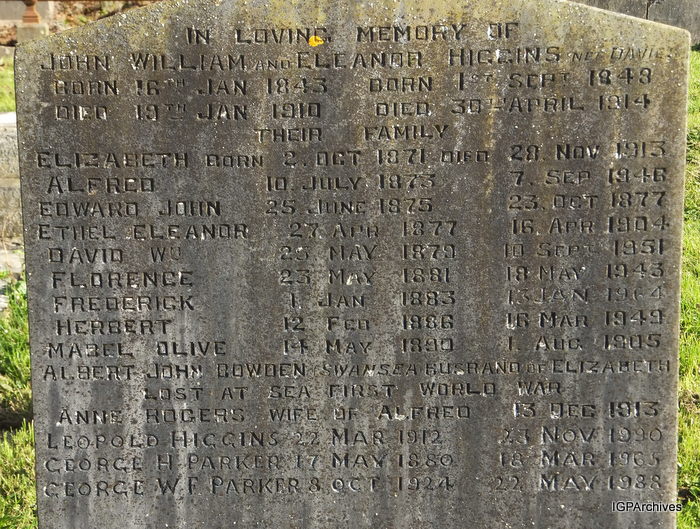 IN LOVING MEMORY OF
JOHN WILLIAM AND ELEANOR HIGGINS NEE DAVIES
BORN 16TH JAN 1843 BORN 1ST SEPT 1848
DIED 19TH JAN 1910 DIED 30TH APRIL 1914
THEIR FAMILY
ELIZABETH BORN 2. OCT 1871 DIED 28. NOV 1913
ALFRED 10 JULY 1873 7. SEP 1946
EDWARD JOHN 25. JUNE 1875 23. OCT 1877
ETHEL ELEANOR 27 APR 1877 16. APR 1904
DAVID WM 25 MAY 1879 10 SEPT 1951
FLORENCE 23 MAY 1881 18 MAY 1943
FREDERICK 1 JAN 1883 13 JAN 1964
HERBERT 12 FEB 1886 16 MAR 1949
MABEL OLIVE 14 MAY 1890 1 AUG 1905
ALBERT JOHN BOWDEN SWANSEA HUSBAND OF ELIZABETH
LOST AT SEA FIRST WORLD WAR
ANNE ROGERS WIFE OF ALFRED 13 DEC 1913
LEOPOLD HIGGINS 22 MAR 1912 23 NOV 1990
GEORGE H PARKER 17 MAY 1880 18 MAR 1965
GEORGE W.F. PARKER 8 OCT 1924 22 MAY 1988
IGPArchives